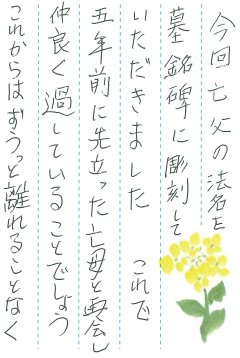 今回亡父の法名を
墓銘碑に彫刻して
いただきました これで
五年前に先立った亡母と再会し
仲良く過していることでしょう
これからはずうっと離れることなく